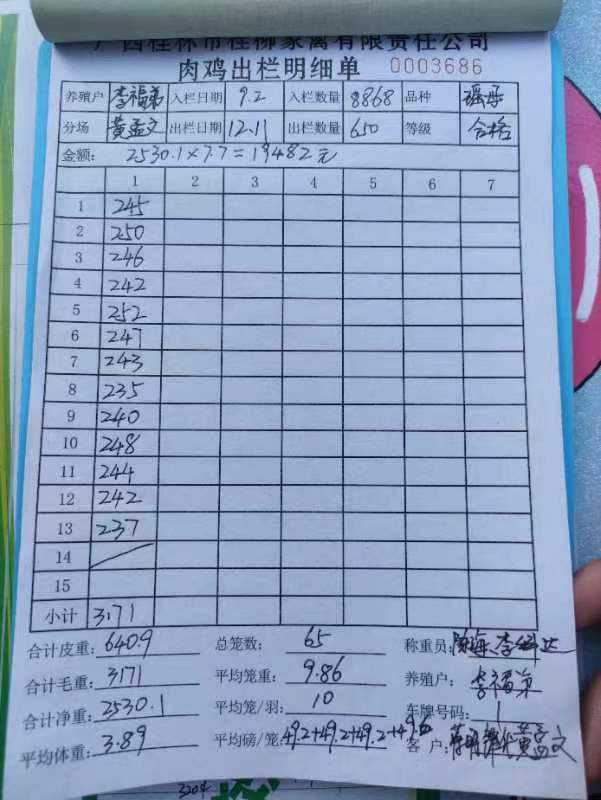 广西桂林市桂柳家禽有限责任公司
肉鸡出栏明细单 0003686
养殖户 李福弟 入栏日期 9.2 入栏数量 8868 品种 瑶母
分场 黄孟文 出栏日期 12.11 出栏数量 650 等级 合格
金额: 2530.1×7.7=19482元
1 2 3 4 5 6 7
1 245
2 250
3 246
4 242
5 252
6 247
7 243
8 235
9 240
10 248
11 244
12 242
13 237
14
15
小计 3171
合计皮重: 640.9 总笼数: 65 称重员:
合计毛重: 3171 平均笼重: 9.86 养殖户: 李福弟
合计净重: 2530.1 平均笼/羽: 10 车牌号码:
平均体重: 3.89 平均磅/笼: 49.2+49.2+49.2+49.6 客户: 黄孟文
3204